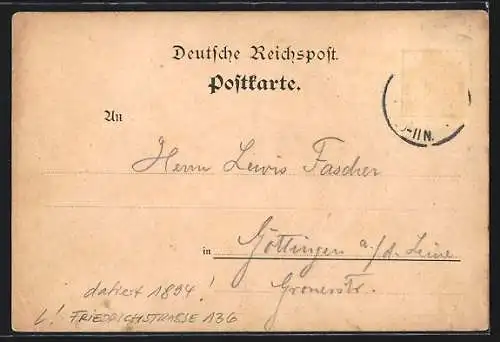 Deutsche Reichspost.
Postkarte.
-11 N.
An
Herrn Lewis Fascher
in Göttingen a./d. Leine
Gronerstr.
datiert 1894!
L! FRIEDRICHSTRASSE 136